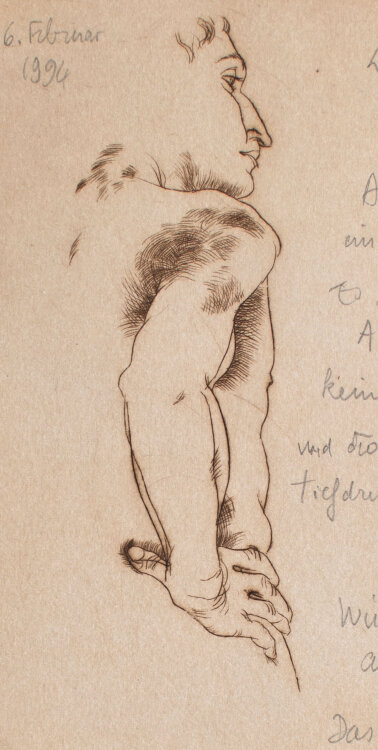 6. Februar
1994
A
ein
Es
A
kein
und dro
tiefdru
Wi
a
Das